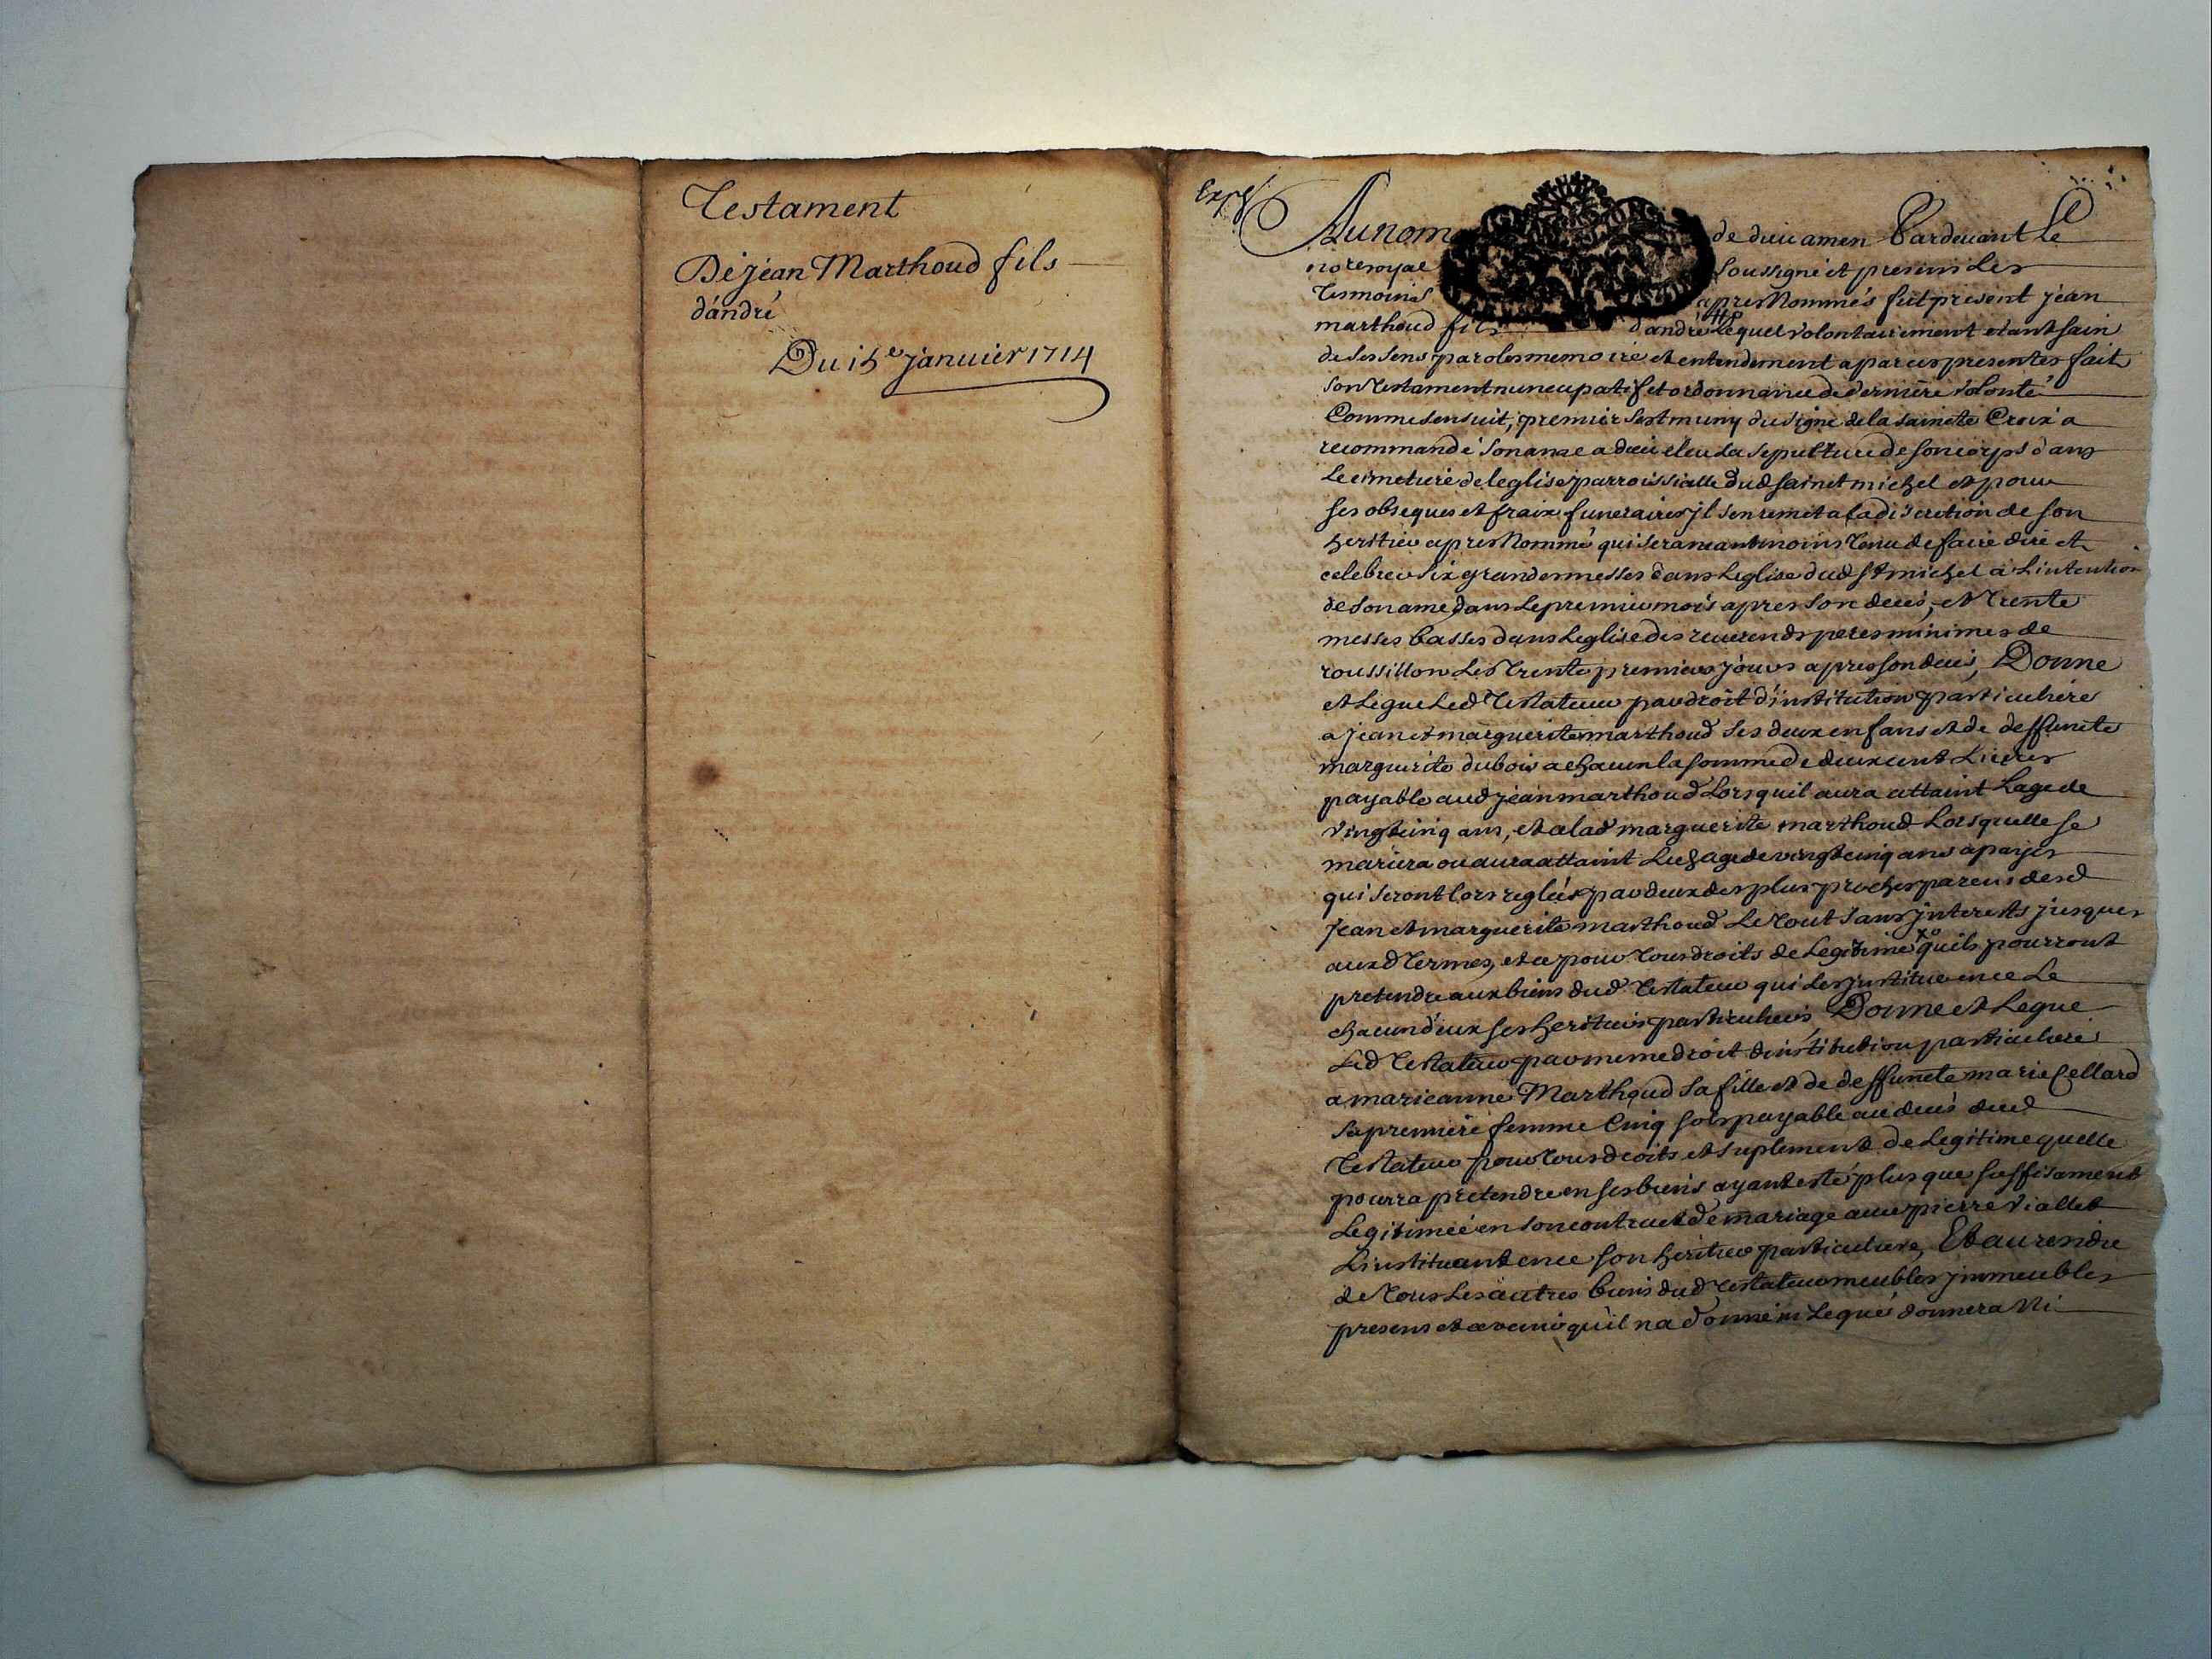 Testament
De jéan Marthoud fils
d'andré
Du 15e janvier 1714
Expé
Au nom de dieu amen Pardevant Le
notre royal soussigné et presens Les
Tesmoins apres Nommés fut present jéan
marthoud fils d'andré Lequel volontairement etant sain
de ses sens paroles memoire et entendement a par ces presentes fait
son Testament nuncupatif et ordonnance de derniere volonté
Comme sensuit, premier sest muny du signe de la saincte Croix a
recommandé son ame a dieu eleu La sepulture de son corps dans
Le cimetiere de leglise parroissialle dud sainct michel et pour
ses obseques et fraix funeraires jl sen remet a la discretion de son
heritier apres Nommé qui sera neantmoins Tenu de faire dire et
celebrer six grandes messes dans Leglise dud st michel a Lintention
de son ame, dans Le premier mois apres son deces, et Trente
messes basses dans Leglise des reverends peres minimes de
roussillon Les Trente premiers jours apres son deces, Donne
et Legue Led Testateur par droit d'institution particuliere
a jean et marguerite marthoud ses deux enfans et de deffuncte
marguerite dubois a chacun la somme de deux cent Livres
payable aud jéan marthoud Lorsquil aura attaint Lage de
vingt cinq ans, et a lad marguerite marthoud Lorsquelle se
mariera ou aura attaint Led age de vingt cinq ans a payes
qui seront lors reglées par deux des plus proches parens desd
jean et marguerite marthoud Le Tout sans jnterests jusques
auxd Termes, et ce pour Tous droits de Legitime quils pourront
pretendre aux biens dud Testateur qui Les jnstitue en ce Le
chacun deux ses heritiers particuliers Donne et Legue
Led Testateur par meme droit dinstitution particuliere
a marieanne Marthoud sa fille et de deffuncte marie Cellard
sa premiere femme Cinq sols payable au deces dud
Testateur pour Tous droits et suplement de Legitime quelle
pourra pretendre en ses biens ayant esté plus que suffisament
Legitimée en son contract de mariage avec pierre viallet
Linstituant en ce son heritiere particuliere, Et au residu
de Tous Les autres biens dud Testateur meubles jmmeubles
presens et avenir qu'il na donné ni Legué donnera Ni